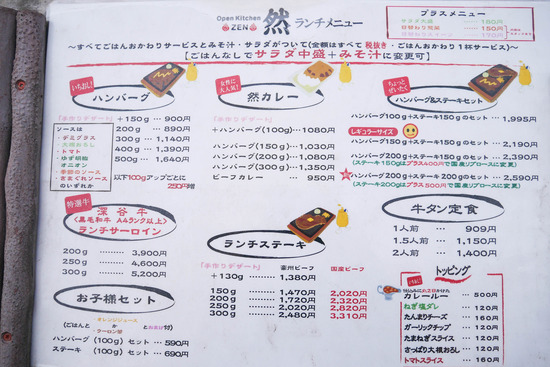 Open Kitchen
ZEN
然 ランチメニュー
プラスメニュー
180円
170円
〜すべてごはんおかわりサービスとみそ汁・サラダがついて(金額はすべて税抜き・ごはんおかわり1杯サービス)〜
【ごはんなしでサラダ中盛+みそ汁に変更可】
いちおし!
ハンバーグ
「手作りデザート」
+150g … 900円
200g … 890円
300g … 1,140円
400g … 1,390円
500g … 1,640円
以下100gアップごとに
250円増
ソースは
・デミグラス
・大根おろし
・トマト
・ゆず胡椒
・オニオン
・季節のソース
・きまぐれソース
のいずれか
女性に
大人気!
然カレー
「手作りデザート」
+ハンバーグ(100g)…1080円
ハンバーグ(150g)…1,030円
ハンバーグ(200g)…1,100円
ハンバーグ(300g)…1,350円
ビーフカレー … 950円
ちょっと
ぜいたく
ハンバーグ&ステーキセット
ハンバーグ100g+ステーキ150gのセット … 1,995円
レギュラーサイズ
ハンバーグ150g+ステーキ150gのセット … 2,090円
ハンバーグ200g+ステーキ150gのセット … 2,190円
(ステーキ150gはプラス400円で国産リブロースに変更)
ハンバーグ200g+ステーキ200gのセット … 2,590円
(ステーキ200gはプラス500円で国産リブロースに変更)
特選牛
深谷牛
<黒毛和牛 A4ランク以上>
ランチサーロイン
200g … 3,900円
250g … 4,600円
300g … 5,200円
ランチステーキ
「手作りデザート」 豪州ビーフ 国産ビーフ
+130g … 1,380円
150g … 1,470円 2,020円
200g … 1,720円 2,320円
250g … 2,020円 2,820円
300g … 2,480円 3,310円
牛タン定食
1人前 … 909円
1.5人前 … 1,150円
2人前 … 1,400円
お子様セット
・オレンジジュース
(ごはんと か とおまけ付)
・ウーロン茶
ハンバーグ(100g)セット … 590円
ステーキ(100g)セット … 690円
トッピング
カレールー … 500円
ねぎ塩ダレ … 120円
たんまりチーズ … 160円
ガーリックチップ … 120円
たまねぎスライス … 120円
さっぱり大根おろし … 120円
トマトスライス … 160円